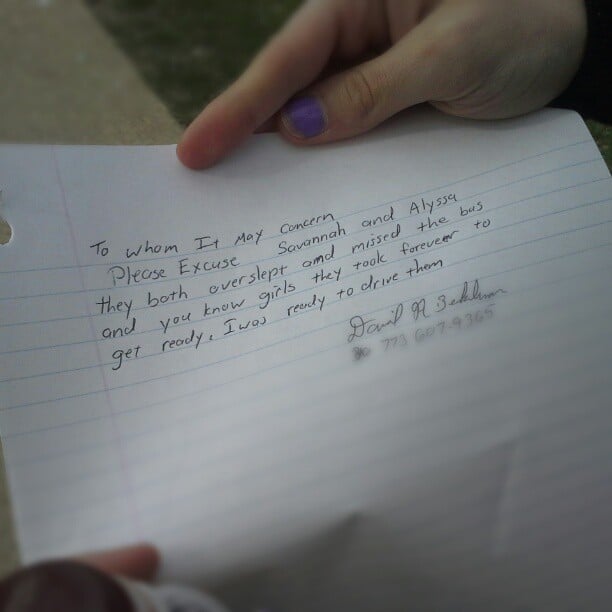 To Whom It May Concern
Please Excuse Savannah and Alyssa
they both overslept and missed the bus
and you know girls they took foreveer to
get ready. I was ready to drive them
David R
773 607-9365